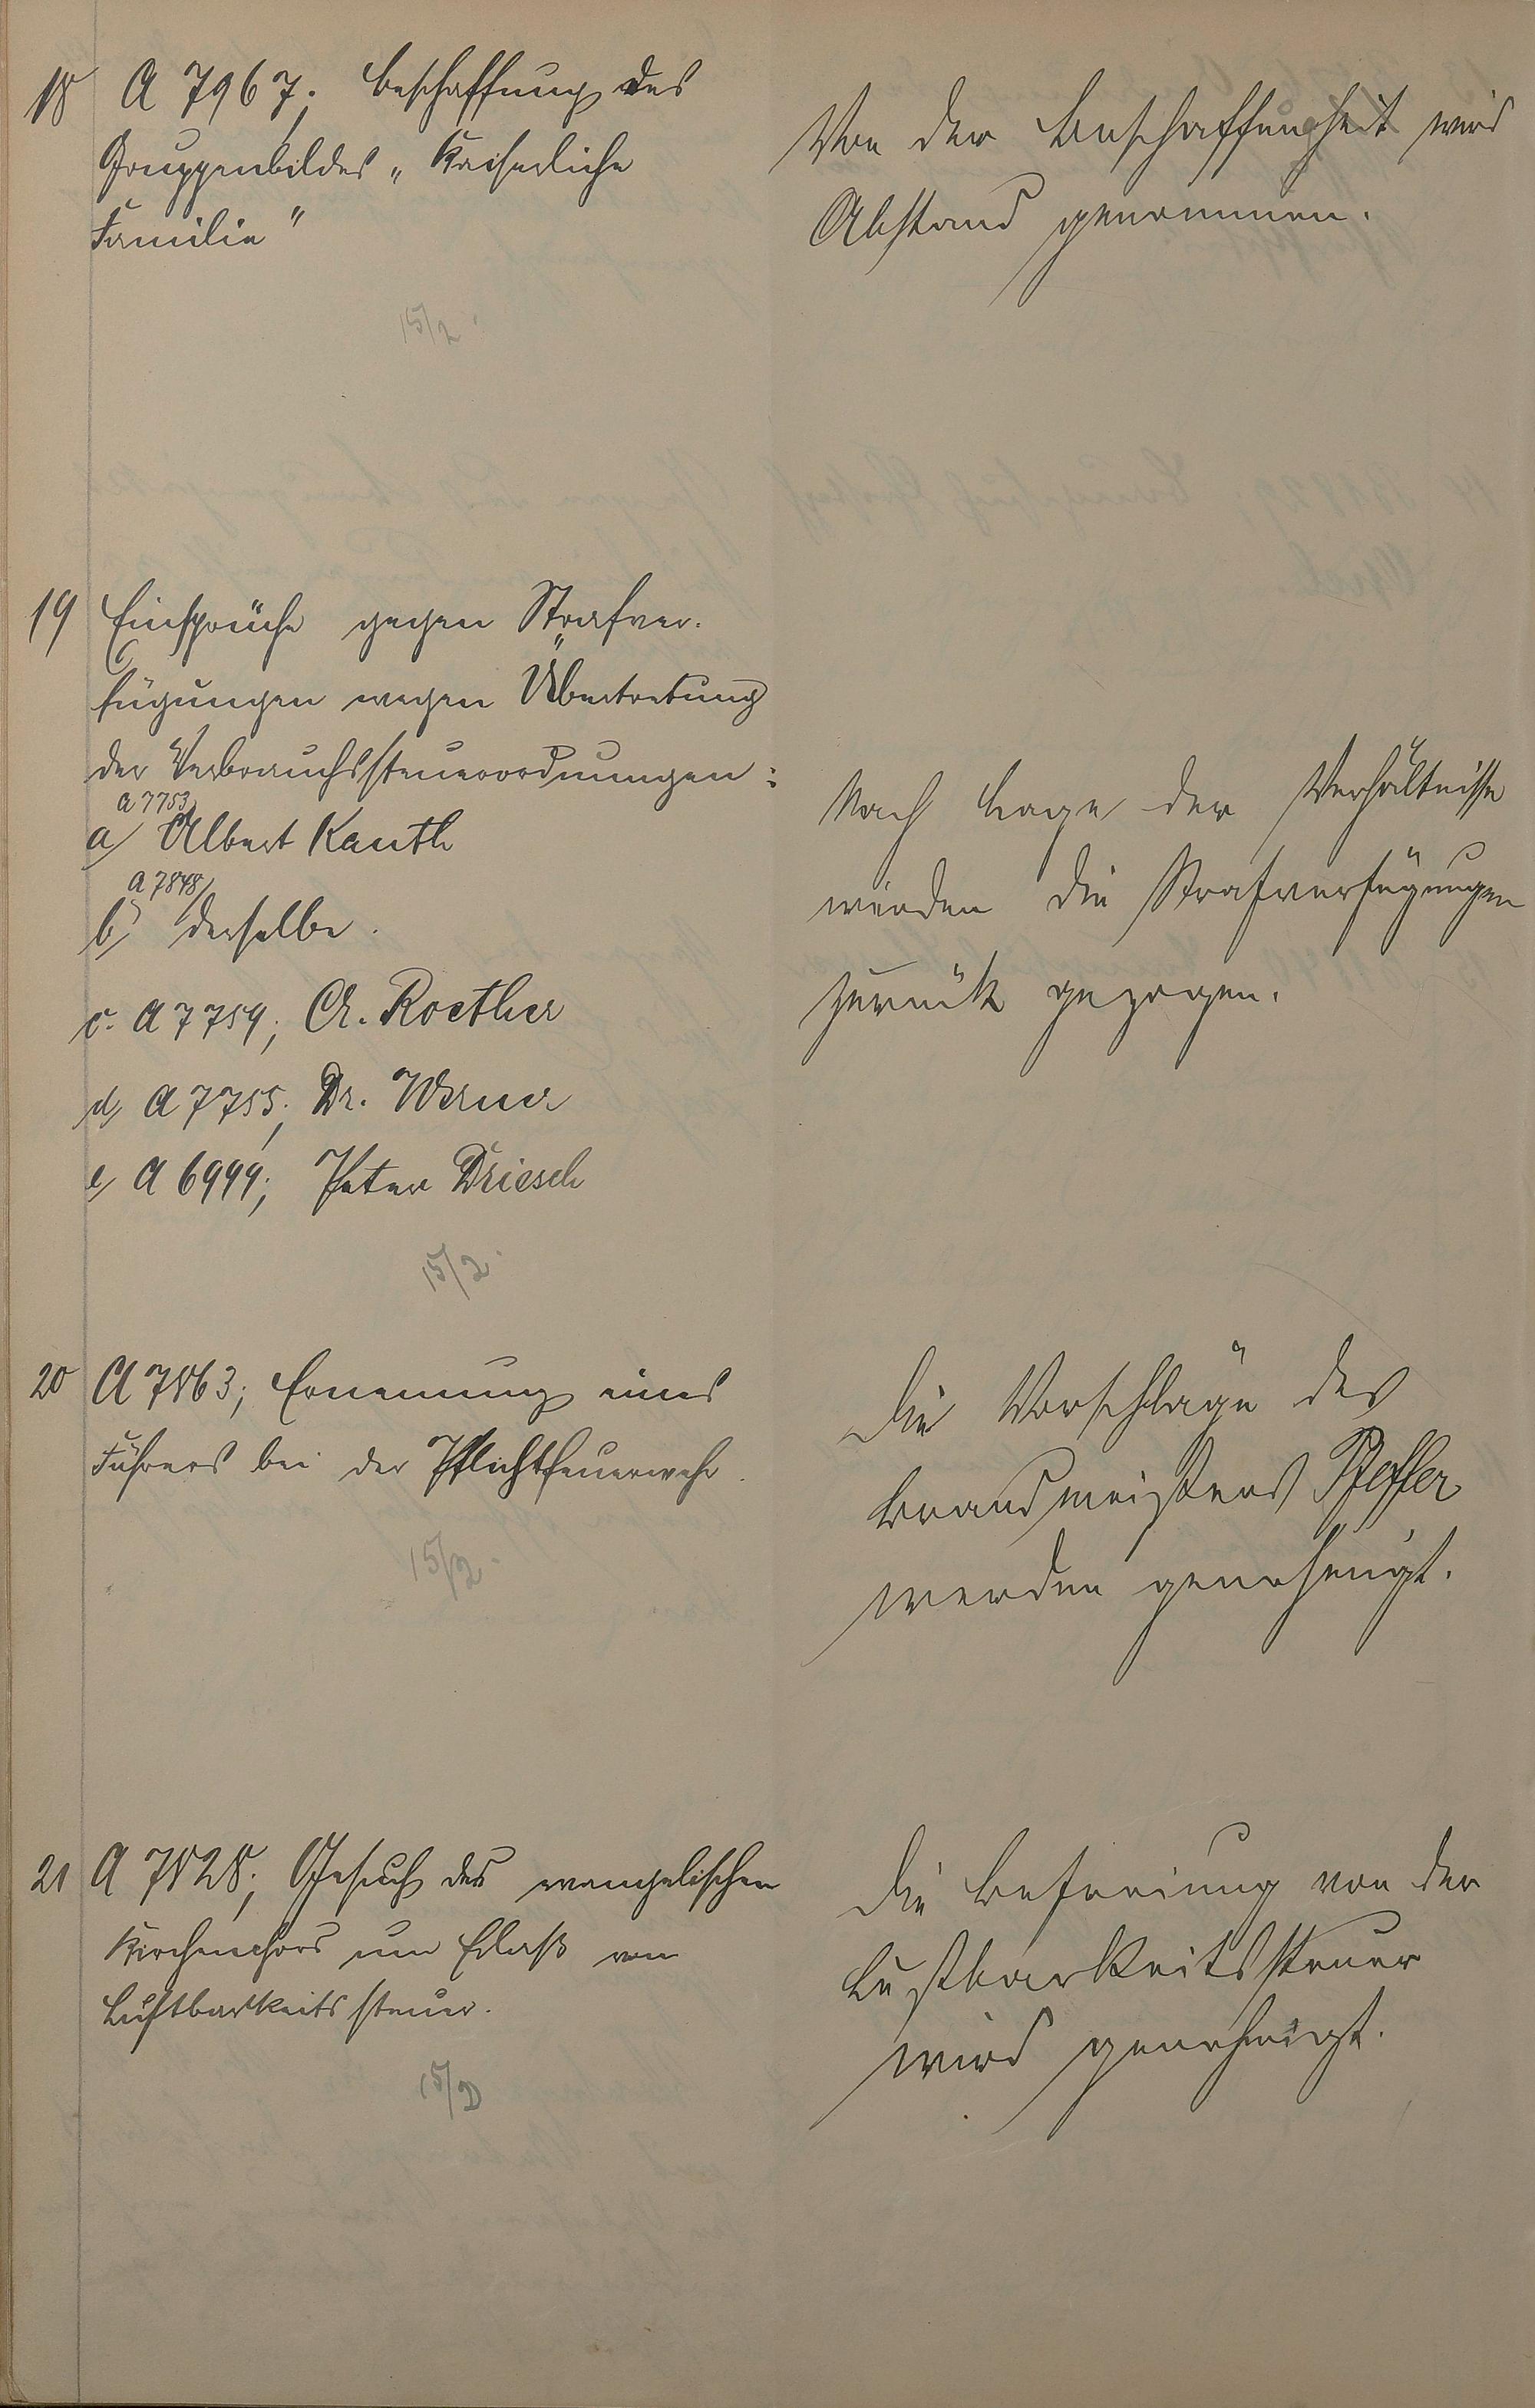 18 A 7967; Beschaffung des
Gruppenbildes „Kaiserliche
Familie"
15/2.
Von der Beschaffungheit wird
Abstand genommen.
19 Einsprüche gegen Strafver-
fügungen wegen Übertretung
der Verbrauchssteuerordnungen:
A 7753
a/ Albert Kauth
A 7848
b/ derselbe.
c. A 7754; Ch. Roether
d/ A 7755; Dr. Werner
e/ A 6999; Peter Driesch
15/2.
Nach Lage der Verhältnisse
werden die Strafverfügungen
zurück gezogen.
20 A 7863; Ernennung eines
Führers bei der Pflichtfeuerwehr.
15/2.
Die Vorschläge des
Brandmeisters Pfeffer
werden genehmigt.
21 A 7828; Gesuch des evangelischen
Kirchenchors um Erlaß von
Lustbarkeitssteuer.
15/2
Die Befreiung von der
Lustbarkeitssteuer
wird genehmigt.